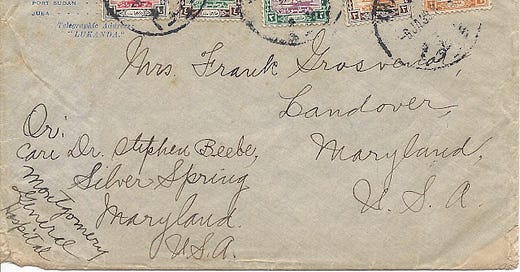 PORT SUDAN
JUBA
Telegraphic Address:
"LUKANDA."
Mrs. Frank Grosvenor,
Landover,
Maryland,
U. S. A.
Or:
Care Dr. Stephen Beebe,
Silver Spring
Maryland.
U.S.A.
Montgomery
General
Hospital